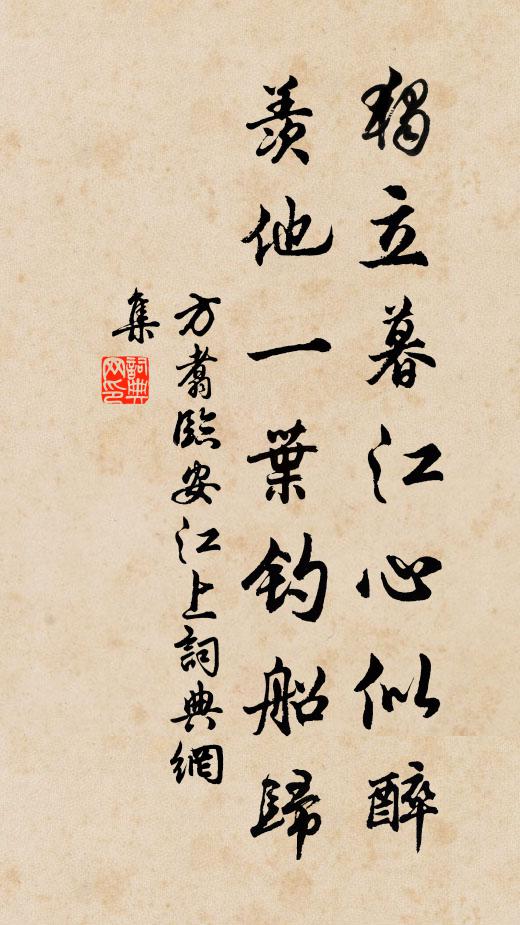 獨立暮江心似醉
羨他一葉釣船歸
方翥臨安江上詞典網
集
詞典
网印